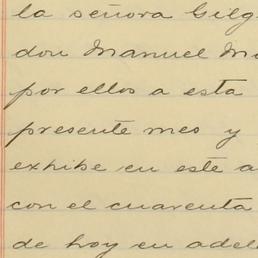 la señora Gilg
don Manuel Ma
por ellos a esta
presente mes y
exhibe en este a
con el cuarenta
de hoy en adel